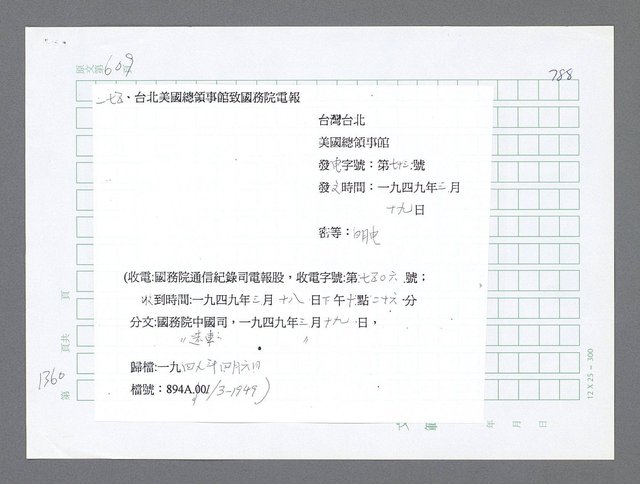 原文第609頁
788
一七五、台北美國總領事館致國務院電報
台灣台北
美國總領事館
發電字號：第七十三號
發文時間：一九四九年三月
十九日
密等：明電
(收電:國務院通信紀錄司電報股，收電字號:第七五〇六號；
收到時間:一九四九年三月十八日下午十點二十六分
分文:國務院中國司，一九四九年三月十九日，
歸檔:一九四九年四月六日
檔號：894A.00/(/3-1949)
頁
頁共
1360
第
年 月 日
12 X 25 = 300